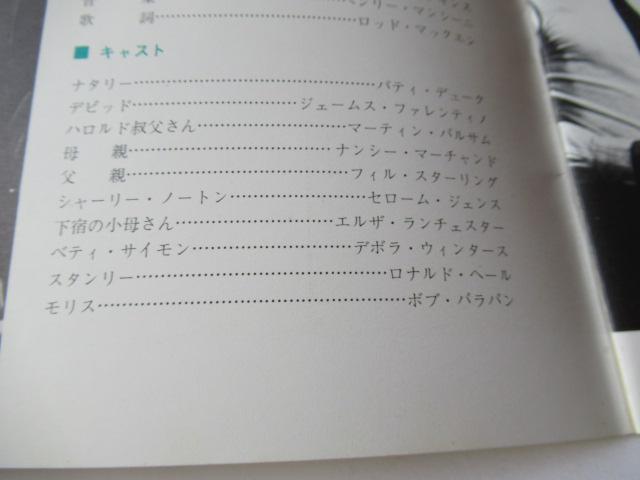 音　楽……ヘンリー・マンシーニ
歌　詞……………………………ロッド・マックエン
■ キャスト
ナタリー……………………………パティ・デューク
デビッド……………………ジェームス・ファレンティノ
ハロルド叔父さん…………………マーティン・バルサム
母　親……………………………ナンシー・マーチャンド
父　親………………………………フィル・スターリング
シャーリー・ノートン………………セローム・ジェンス
下宿の小母さん……………………エルザ・ランチェスター
ベティ・サイモン……………………デボラ・ウィンタース
スタンリー………………………………ロナルド・ヘール
モリス………………………………………ボブ・バラバン